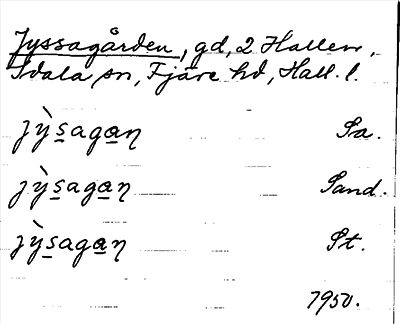 Jyssagården, gd, 2 Hallen,
Idala sn, Fjäre hd, Hall. l.
jỳsagaŋ Sa.
jỳsagaŋ Sand.
jỳsagaŋ St.
1950.